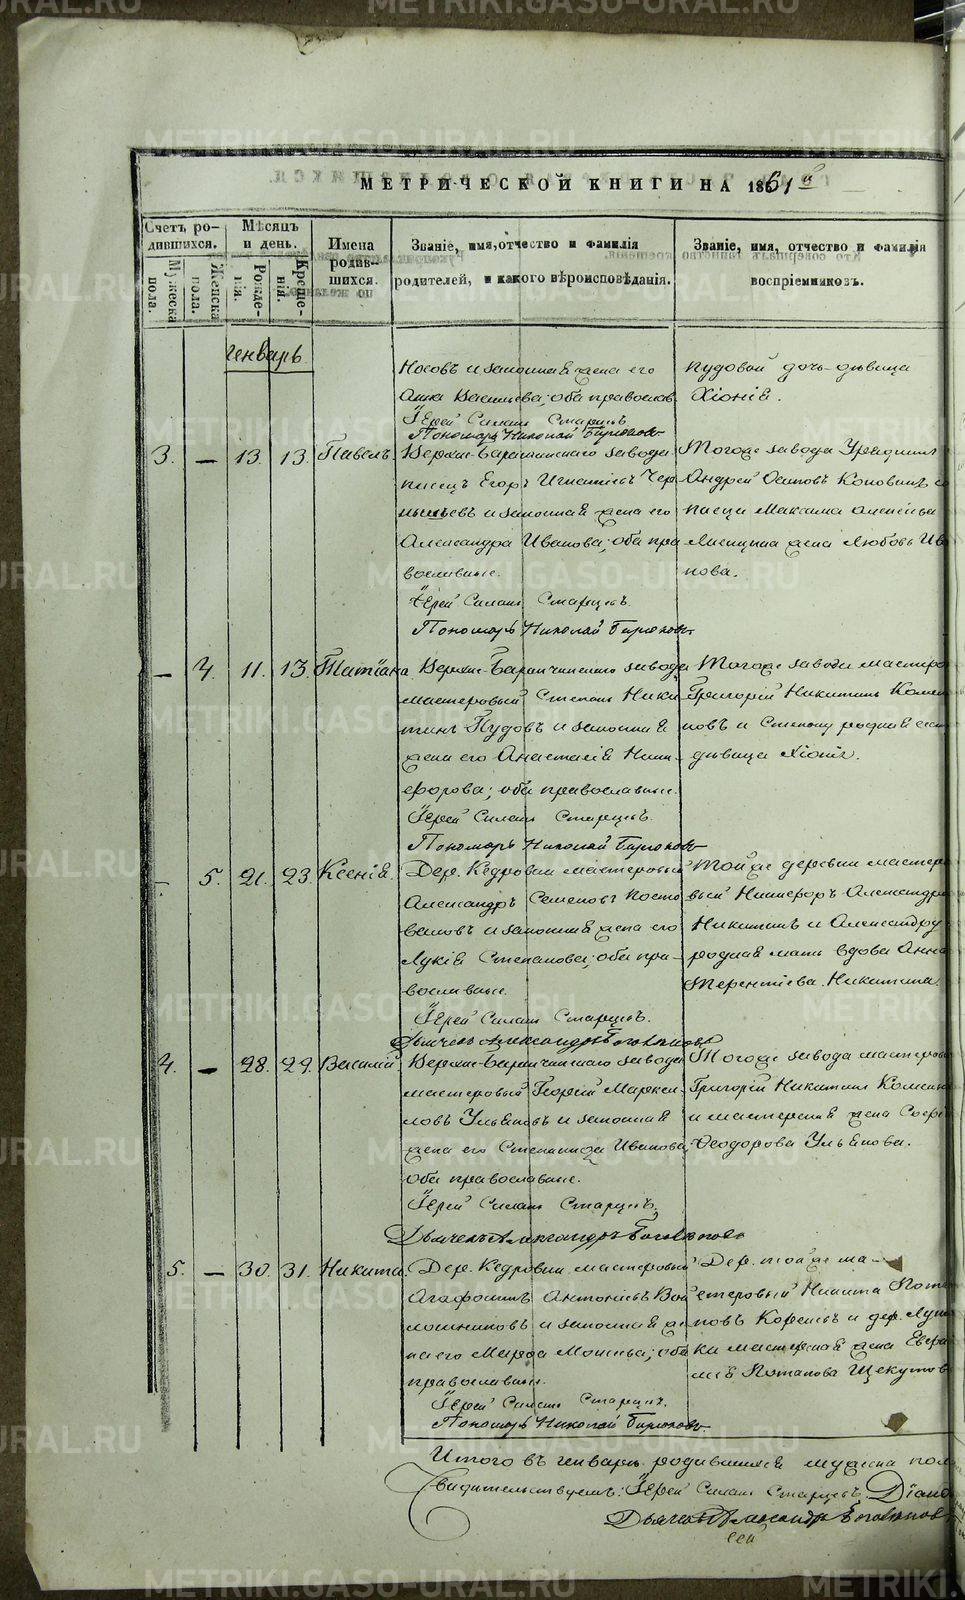 МЕТРИЧЕСКОЙ КНИГИ НА 1861й
Счетъ ро-
дившихся.
Мужеска
пола.
Женска
пола.
Мѣсяцъ
и день.
Рожде-
нія.
Креще-
нія.
Имена
родив-
шихся.
Званіе, имя, отчество и фамилія
родителей, и какого вѣроисповѣданія.
Званіе, имя, отчество и фамилія
воспріемниковъ.
Генварь
Носовъ и законная жена его
Анна Васильева; оба православ.
Іерей Силинъ Старцевъ
Пономарь Николай Бирюковъ
Пудовой дочь дѣвица
Хіонія.
3. — 13. 13. Павелъ.
Верхне-Баранчинскаго завода
писецъ Егоръ Игнатьевъ Чер
нышевъ и законная жена его
Александра Иванова; оба пра
вославные.
Іерей Старцевъ.
Пономарь Николай Бирюковъ
Тогоже завода
Андрей Осиповъ
писца Максима
жена Любовь Ива
нова.
— 4. 11. 13. Татіана
Верхне-Баранчинскаго завода
мастеровый Степанъ Ники
тинъ Пудовъ и законная
жена его Анастасія Ники-
форова; оба православные.
Іерей Старцевъ.
Пономарь Николай Бирюковъ
Тогоже завода мастеро
Григорій Никитинъ
новъ и Степану родная сест
дѣвица Хіонія.
— 5. 21. 23. Ксенія.
Дер. Кедровки мастеровый
Александръ Семеновъ Косто
валовъ и законная жена его
Лукія Степанова; оба пра-
вославные.
Іерей Старцевъ.
Дьячекъ Александръ Боголюповъ
Тойже деревни мастеро
вый Никифоръ Александро
Никитинъ и Александру
родная мать вдова Анна
Терентіева Никитина.
4. — 28. 29. Василій
Верхне-Баранчинскаго завода
мастеровый Георгій Марки
новъ Ульяновъ и законная
жена его Степанида Иванова,
оба православные.
Іерей Старцевъ.
Дьячекъ Александръ Боголюповъ
Тогоже завода мастеро
Григорій Никитинъ
и мастерская жена Софія
Ѳеодорова Ульянова.
5. — 30. 31. Никита.
Дер. Кедровки мастеровый
Агафонъ Антоніевъ Вой
лошниковъ и законная же
на его Марѳа Моисеева; оба
православные.
Іерей Старцевъ.
Пономарь Николай Бирюковъ
Дер. тойже ма-
стеровый Никита Пота
повъ и дер. Лук
ки мастерская жена Евра
Потапова Щекутов
Итого въ генварѣ родившихся мужска пол
Свидѣтельствуемъ: Іерей Старцевъ.
Дьячекъ Александръ Боголюпов